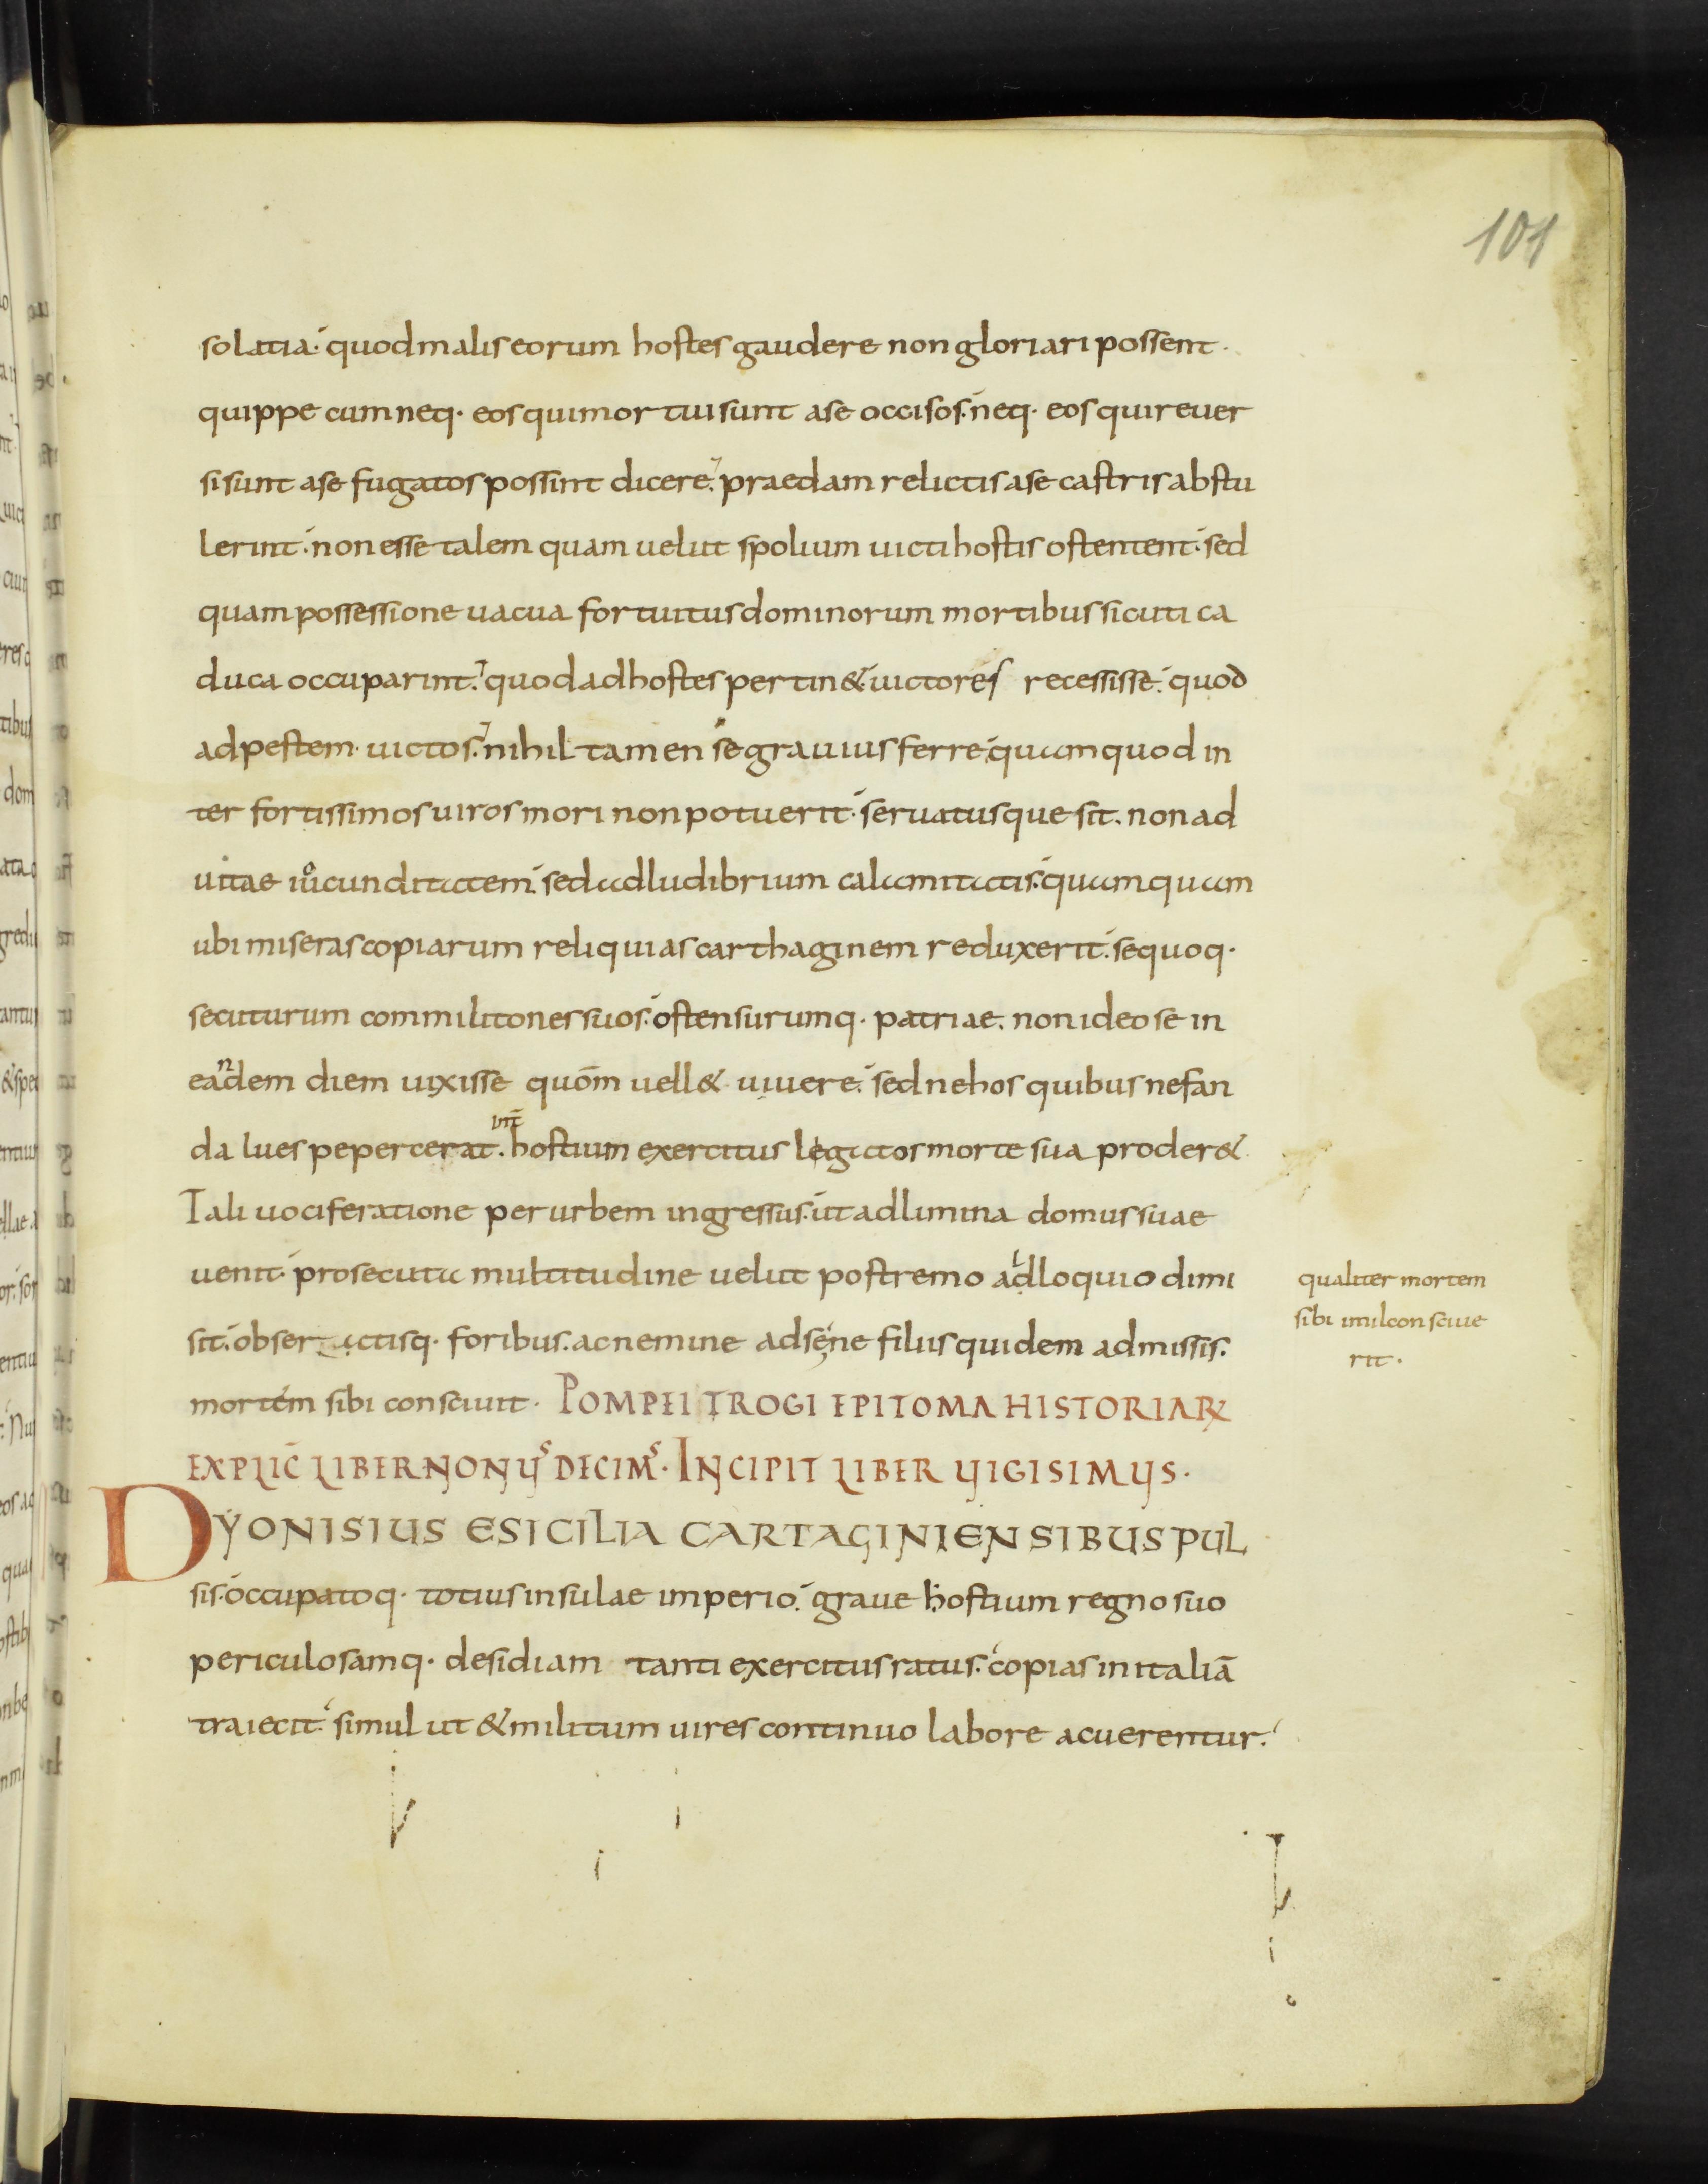 101
solatia· quod malis eorum hostes gaudere non gloriari possent·
quippe cum neq· eos qui mortui sunt a se occisos· neq· eos qui reuer
si sunt a se fugatos possint dicere· praedam relictis a se castris abstu
lerint· non esse talem quam uelut spolium uicti hostis ostentent· sed
quam possessione uacua fortuitus dominorum mortibus sicuti ca
duca occuparint· quod ad hostes pertin&· uictores recessisse· quod
ad pestem· uictos· nihil tamen se grauius ferre· quam quod in
ter fortissimos uiros mori non potuerit· seruatusque sit· non ad
uitae iuocunditatem· sed ad ludibrium calamitatis· quamquam
ubi miseras copiarum reliquias carthaginem reduxerit· se quoq·
secuturum commilitones suos· ostensurumq· patriae· non ideo se in
eandem diem uixisse quōm uell& uiuere· sed ne hos quibus nefan
da lues pepercerat· int̄ hostium exercitus legatos morte sua proder&
Tali uociferatione per urbem ingressus· ut ad limina domus suae
uenit· prosecuta multitudine uelut postremo adloquio dimi
sit· obseratisq· foribus· ac nemine ad se ne filiis quidem admissis·
mortem sibi consciuit· POMPEI TROGI EPITOMA HISTORIARꝜ
EXPLIC̄ LIBER NONUS DECIMS· INCIPIT LIBER UIGISIMUS·
DYONISIUS E SICILIA CARTAGINIENSIBUS PUL
sis· occupatoq· totius insulae imperio· graue hostium regno suo
periculosamq· desidiam tanti exercitus ratus· copias in italiā
traiecit· simul ut & militum uires continuo labore acuerentur·
qualiter mortem
sibi imilcon sciue
rit·